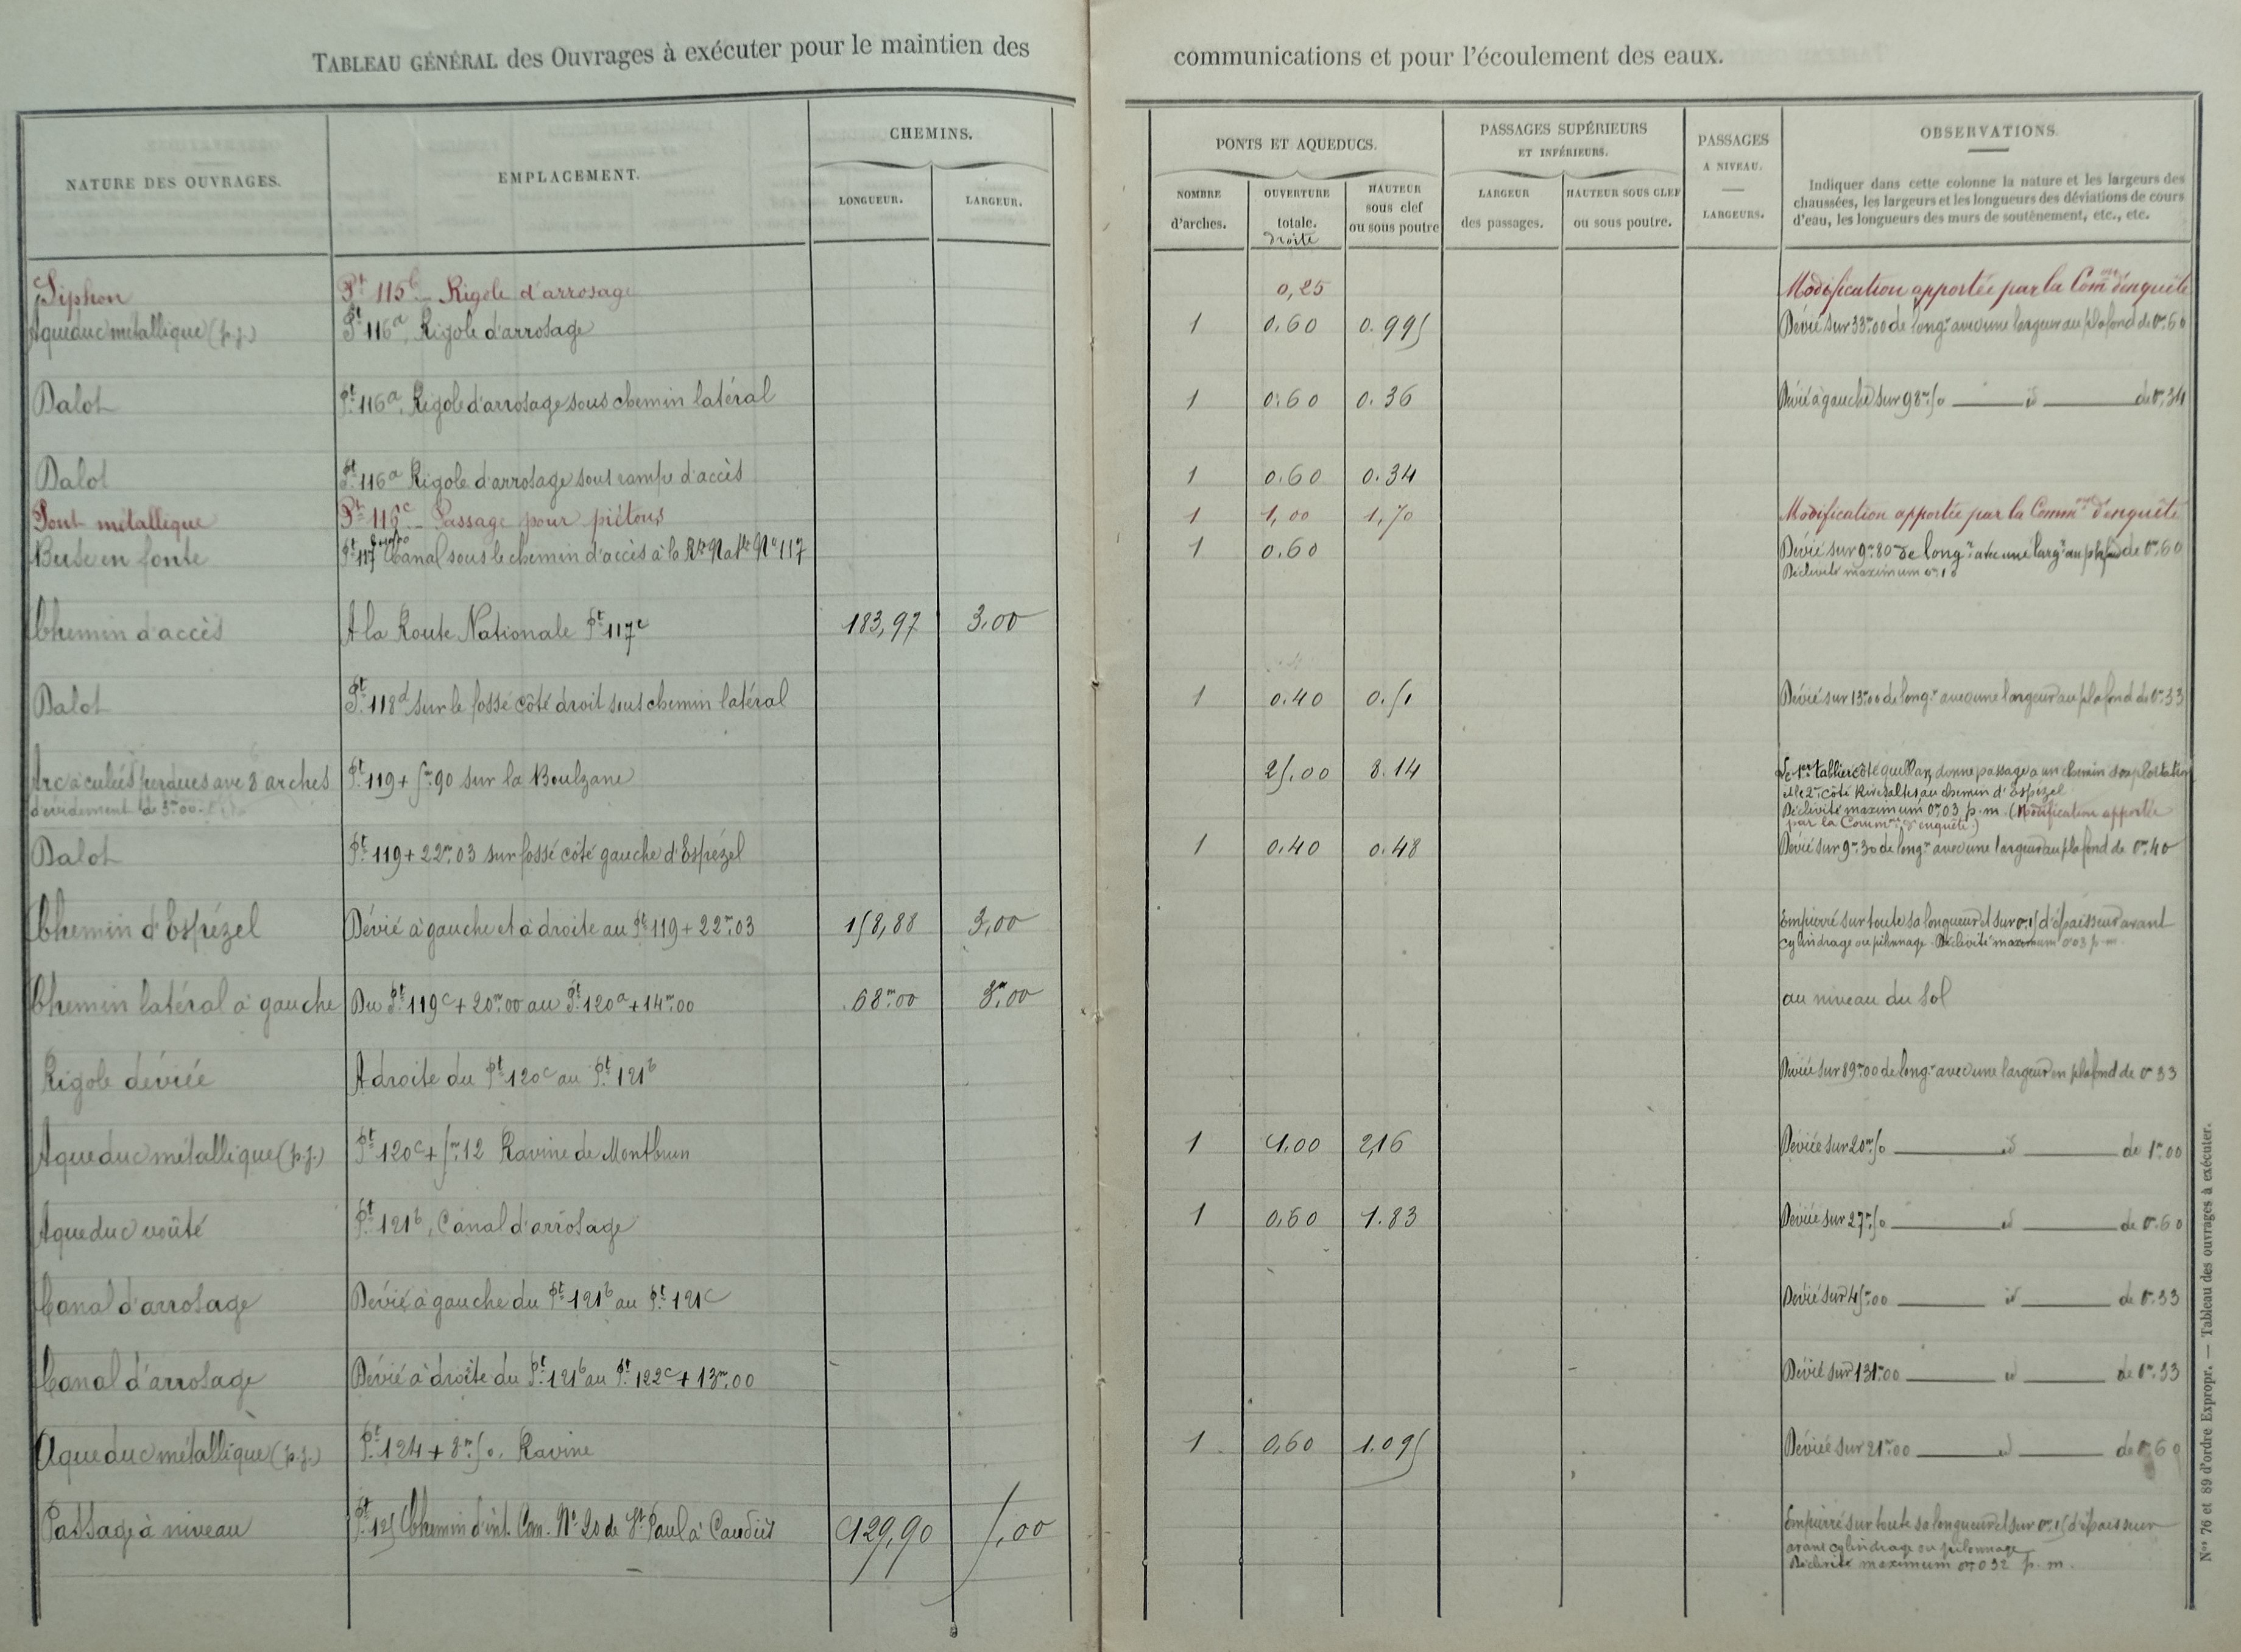 TABLEAU GÉNÉRAL des Ouvrages à exécuter pour le maintien des communications et pour l'écoulement des eaux.
NATURE DES OUVRAGES.
EMPLACEMENT.
CHEMINS.
LONGUEUR.
LARGEUR.
PONTS ET AQUEDUCS.
NOMBRE d'arches.
OUVERTURE totale. droite
HAUTEUR sous clef ou sous poutre
PASSAGES SUPÉRIEURS ET INFÉRIEURS.
LARGEUR des passages.
HAUTEUR SOUS CLEF ou sous poutre.
PASSAGES A NIVEAU.
LARGEURS.
OBSERVATIONS.
Indiquer dans cette colonne la nature et les largeurs des
chaussées, les largeurs et les longueurs des déviations de cours
d'eau, les longueurs des murs de soutènement, etc., etc.
Siphon Pt 115b - Rigole d'arrosage 0,25 Modification apportée par la Comon d'enquête
Aqueduc métallique (p.j.) Pt 116a, Rigole d'arrosage 1 0.60 0.995 Dévié sur 33m.00 de longr avec une largeur au plafond de 0m.60
Dalot Pt 116a, Rigole d'arrosage sous chemin latéral 1 0.60 0.36 Dévié à gauche sur 98m.50 — id — de 0m,34
Dalot Pt 116a Rigole d'arrosage sous rampe d'accès 1 0.60 0.34
Pont métallique Pt 116c - Passage pour piétons 1 1,00 1,70 Modification apportée par la Common d'enquête
Buse en fonte Pt 117 Canal sous le chemin d'accès à la Rte Natle No 117 1 0.60 Dévié sur 9m.80 de longr avec une largr au plafond de 0m.60
Déclivité maximum 0m.10
Chemin d'accès A la Route Nationale Pt 117c 183,97 3.00
Dalot Pt 118d sur le fossé côté droit sous chemin latéral 1 0.40 0.51 Dévié sur 13m.00 de longr avec une largeur au plafond de 0m.33
Arc à culées perdues avec 3 arches Pt 119 + 5m.90 sur la Boulzane 25.00 8.14 Le 1er tablier côté Quillan donne passage à un chemin d'exploitation
d'évidement de 3m00. et le 2e côté Rivesaltes au chemin d'Espézel
Déclivité maximum 0m,03 p.m. (Modification apportée
par la Common d'enquête)
Dalot Pt 119 + 22m.03 sur fossé côté gauche d'Espézel 1 0.40 0.48 Dévié sur 9m.30 de longr avec une largeur au plafond de 0m.40
Chemin d'Espézel Dévié à gauche et à droite au Pt 119 + 22m.03 158,88 3,00 Empierré sur toute sa longueur et sur 0m.15 d'épaisseur avant
cylindrage ou pilonnage. Déclivité maximum 0m03 p.m.
Chemin latéral à gauche Du Pt 119c + 20m.00 au Pt 120a + 14m.00 68m.00 3m.00 au niveau du sol
Rigole déviée A droite du Pt 120c au Pt 121b Déviée sur 89m.00 de longr avec une largeur en plafond de 0m33
Aqueduc métallique (p.j.) Pt 120c + 5m.12 Ravine de Montbrun 1 4.00 2,16 Déviée sur 20m.50 — id — de 1m.00
Aqueduc voûté Pt 121b, Canal d'arrosage 1 0.60 1.83 Déviée sur 27m.50 — id — de 0m.60
Canal d'arrosage Dévié à gauche du Pt 121b au Pt 121c Dévié sur 45m.00 — id — de 0m.33
Canal d'arrosage Dévié à droite du Pt 121b au Pt 122c + 13m.00 Dévié sur 131m.00 — id — de 0m.33
Aqueduc métallique (p.j.) Pt 124 + 8m.50. Ravine 1 0,60 1.095 Déviée sur 21m.00 — id — de 0m.60
Passage à niveau Pt 125 Chemin d'int. Com. No 20 de St Paul à Caudiès 129,90 5,00 Empierré sur toute sa longueur et sur 0m.15 d'épaisseur
avant cylindrage ou pilonnage
Déclivité maximum 0m.032 p.m.
Nos 76 et 89 d'ordre Expropr. — Tableau des ouvrages à exécuter.